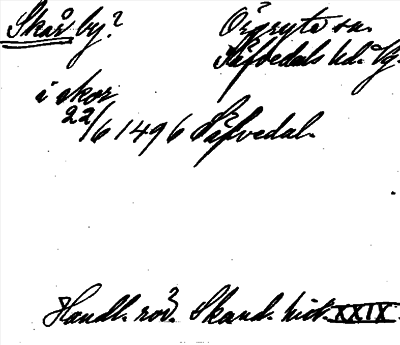 Skår by?
Örgryte sn.
Säfvedals hd. Vg.
i skor
22/6 1496 Säfvedal.
Handl. rör. Skand. hist. XXIX